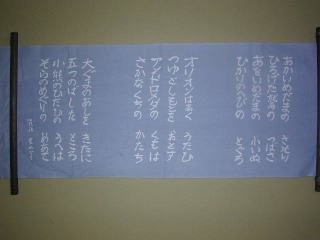 あかいめだまの さそり
ひろげた鷲の つばさ
あをいめだまの 小いぬ
ひかりのへびの とぐろ
オリオンは高く うたひ
つゆとしもとを おとす
アンドロメダの くもは
さかなのくちの かたち
大ぐまのあしを きたに
五つのばした ところ
小熊のひたひの うへは
そらのめぐりの めあて